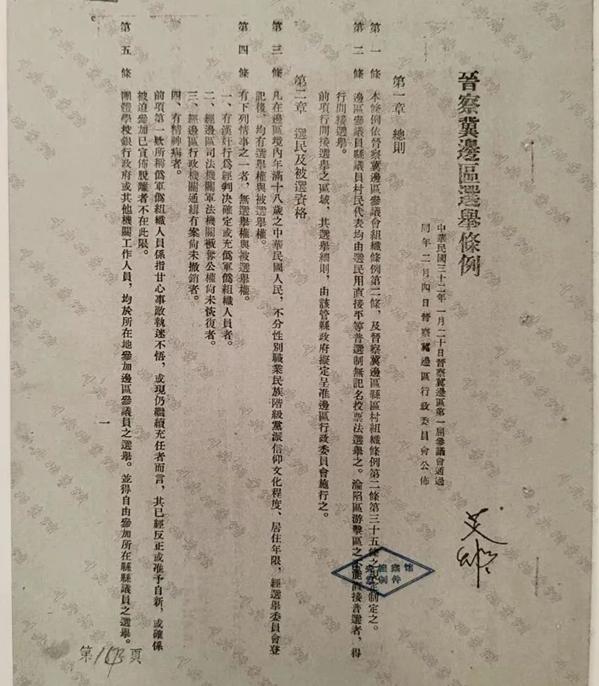 晉察冀邊區選舉條例
中華民國三十二年一月二十日晉察冀邊區第一屆參議會通過
同年二月四日晉察冀邊區行政委員會公佈
第一章 總則
第一條 本條例依晉察冀邊區參議會組織條例第二條，及晉察冀邊區縣區村組織條例第二條第三十五條之規定制定之。
第二條 邊區參議員縣議員村民代表均由選民用直接平等普選制無記名投票法選舉之。淪陷區游擊區之不能直接普選者，得
行間接選舉。
前項行間接選舉之區域，其選舉細則，由該管縣政府擬定呈准邊區行政委員會施行之。
第二章 選民及被選資格
第三條 凡在邊區境內年滿十八歲之中華民國人民，不分性別職業民族階級黨派信仰文化程度、居住年限，經選舉委員會登
記後，均有選舉權與被選舉權。
第四條 有下列情事之一者，無選舉權與被選舉權。
一、有漢奸行為經判決確定或充偽軍偽組織人員者。
二、經邊區司法機關軍法機關褫奪公權尚未恢復者。
三、經邊區行政機關通緝有案尚未撤銷者。
四、有精神病者。
前項第一款所稱偽軍偽組織人員係指甘心事敵執迷不悟，或現仍繼續充任者而言，其已經反正或准予自新，或確係
被迫參加已宣佈脫離者不在此限。
第五條 團體學校銀行政府或其他機關工作人員，均於所在地參加邊區參議員之選舉。並得自由參加所在縣縣議員之選舉。
一
第 頁